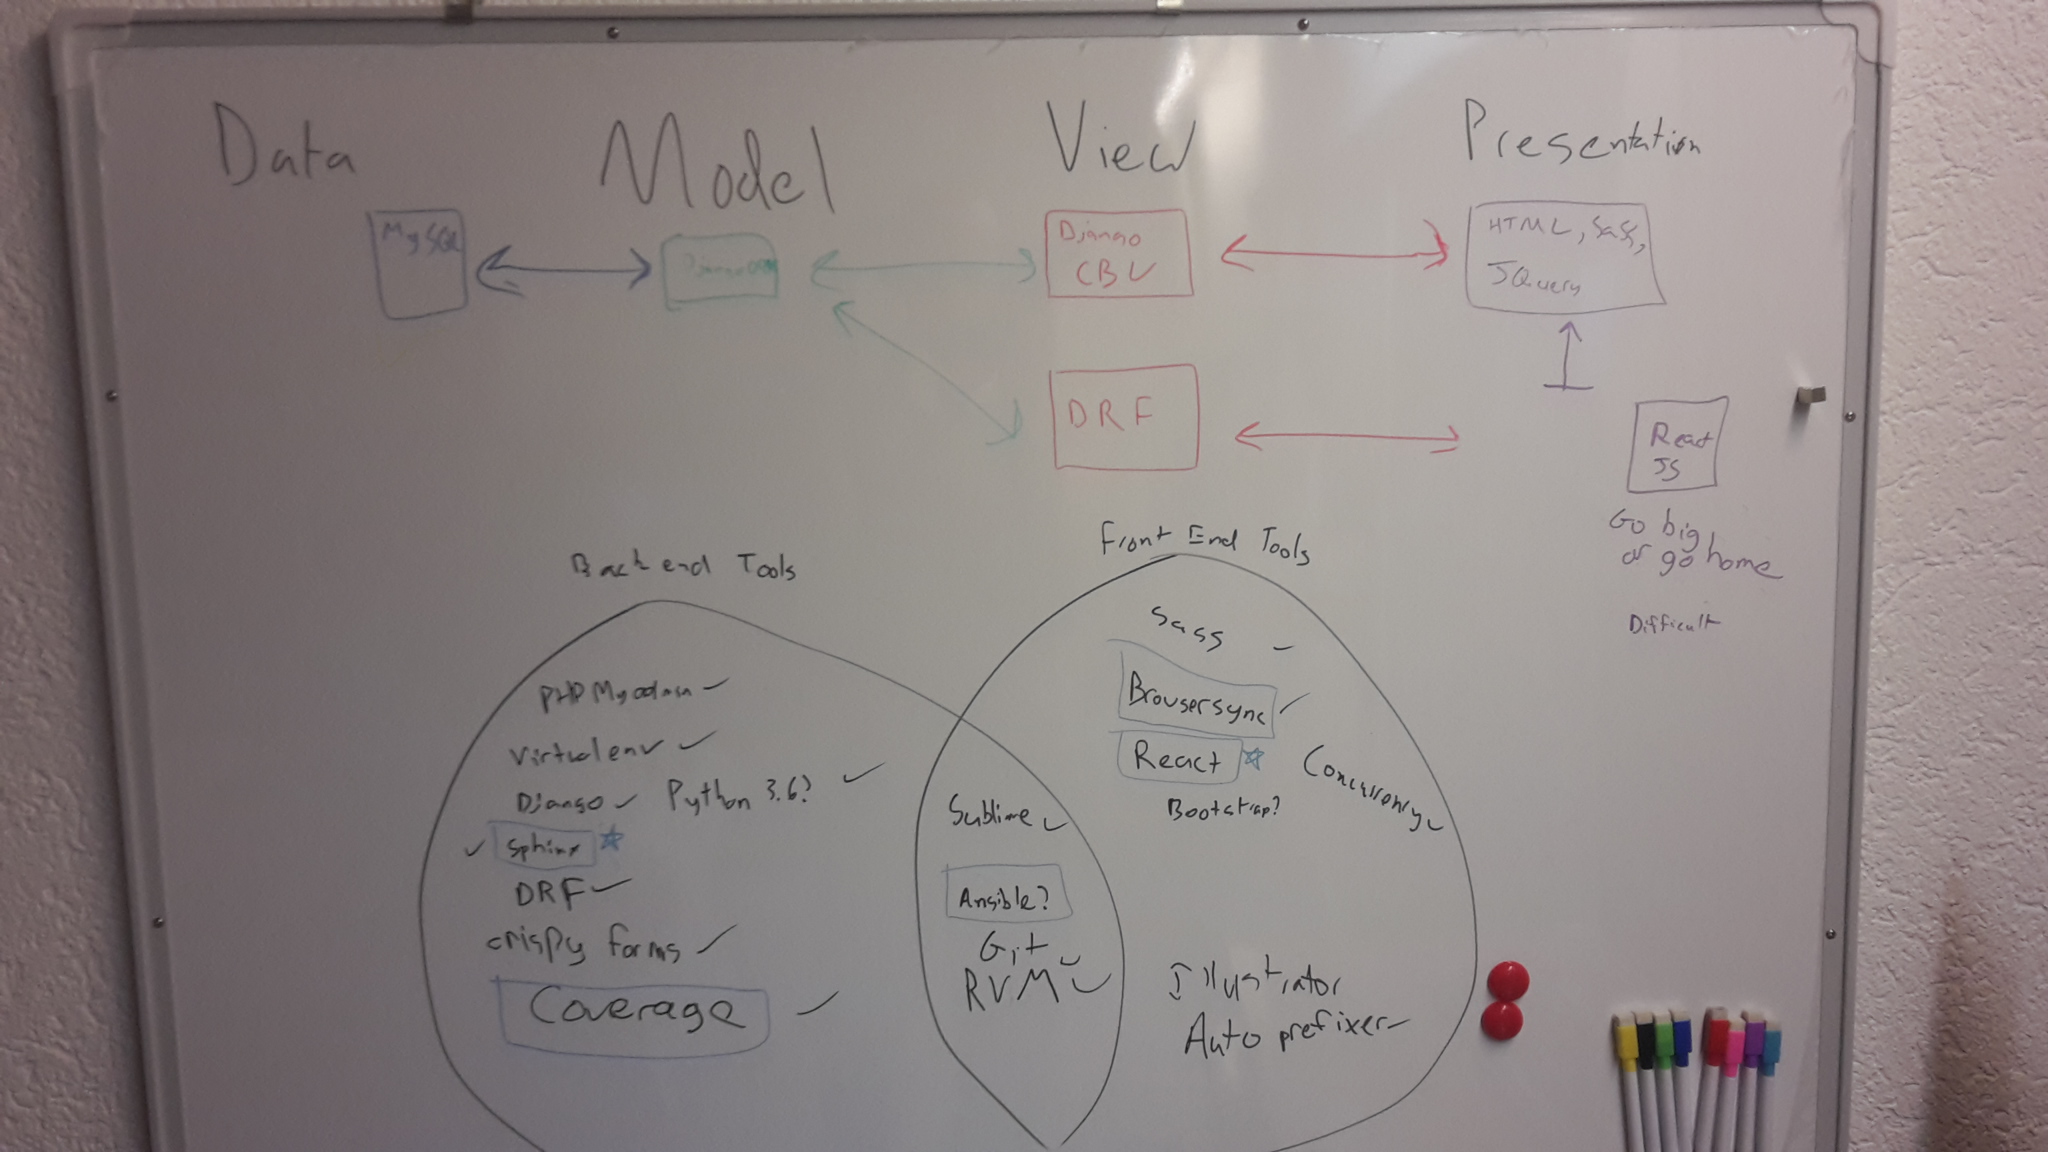 Data
Model
View
Presentation
MySQL
Django
CBV
HTML, Sass,
JQuery
DRF
React
JS
Go big
or go home
Difficult
Back end Tools
Front End Tools
PHPMyadmin
Virtualenv
Django
Python 3.6?
Sphinx
DRF
crispy forms
Coverage
Sublime
Ansible?
Git
RVM
Sass
Browsersync
React
Concurrency
Bootstrap?
Illustrator
Auto prefixer